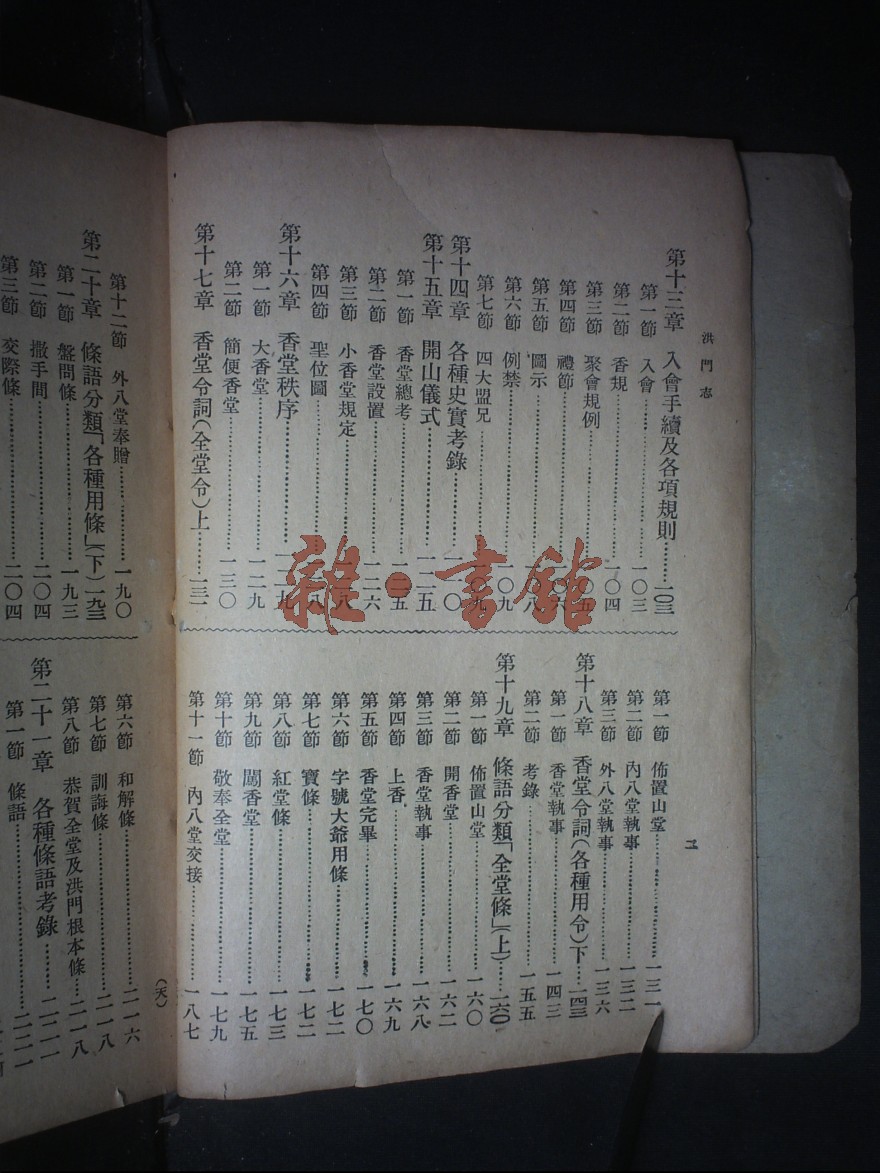 洪門志
第十三章 入會手續及各項規則………一〇三
第一節 入會………一〇三
第二節 香規………一〇四
第三節 聚會規例………一〇五
第四節 禮節………
第五節 圖示………一〇八
第六節 例禁………一〇九
第七節 四大盟兄………一〇九
第十四章 各種史實考錄………一一〇
第十五章 開山儀式………一一五
第一節 香堂總考………
第二節 香堂設置………一二六
第三節 小香堂規定………
第四節 聖位圖………
第十六章 香堂秩序………一二九
第一節 大香堂………一二九
第二節 簡便香堂………一三〇
第十七章 香堂令詞(全堂令)上………一三一
第一節 佈置山堂………一三一
第二節 內八堂執事………一三二
第三節 外八堂執事………一三六
第十八章 香堂令詞(各種用令)下………一四三
第一節 香堂執事………一四三
第二節 考錄………一五五
第十九章 條語分類「全堂條」(上)………一六〇
第一節 佈置山堂………一六〇
第二節 開香堂………一六二
第三節 香堂執事………一六八
第四節 上香………一六九
第五節 香堂完畢………一七〇
第六節 字號大爺用條………一七二
第七節 寶條………一七二
第八節 紅堂條………一七三
第九節 闖香堂………一七五
第十節 敬奉全堂………一七九
第十一節 內八堂交接………一八七
第十二節 外八堂奉贈………一九〇
第二十章 條語分類「各種用條」(下)一九三
第一節 盤問條………一九三
第二節 撒手間………二〇四
第三節 交際條………二〇四
第六節 和解條………二一六
第七節 訓誨條………二一八
第八節 恭賀全堂及洪門根本條………二一八
第二十一章 各種條語考錄………二二一
第一節 條語………二二一
(天)
雜·書館